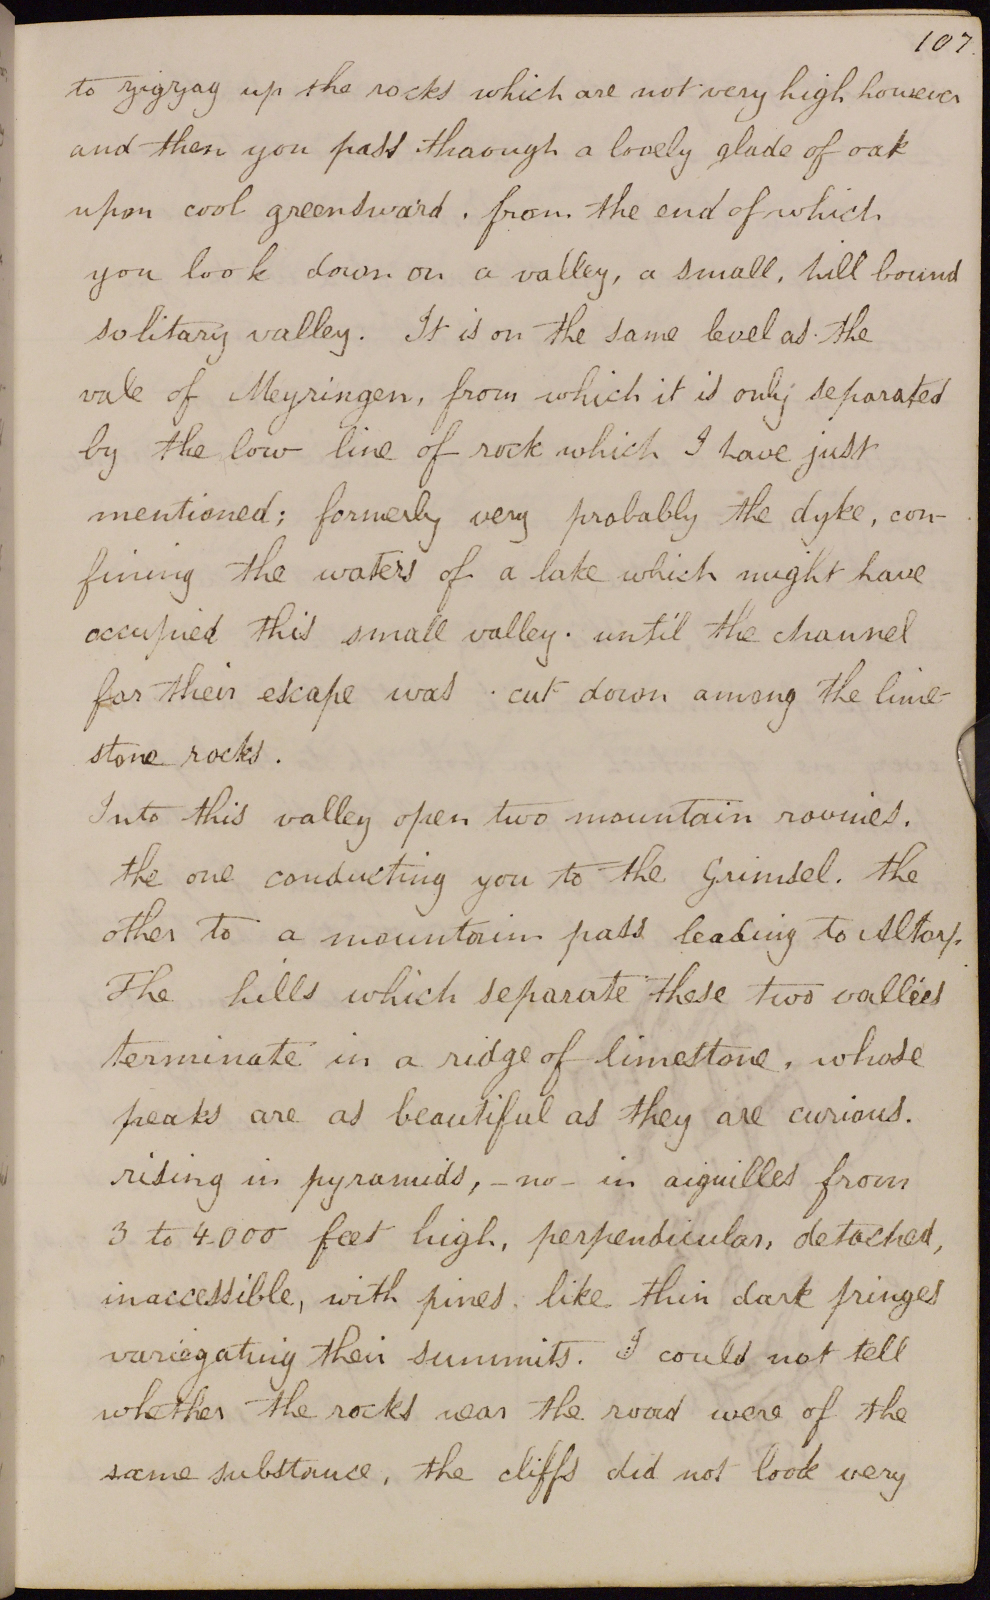 107.
to zigzag up the rocks which are not very high however
and then you pass through a lovely glade of oak
upon cool greensward. from the end of which
you look down on a valley, a small, hill bound
solitary valley. It is on the same level as the
vale of Meyringen, from which it is only separated
by the low line of rock which I have just
mentioned; formerly very probably the dyke, con-
fining the waters of a lake which might have
occupied this small valley. until the channel
for their escape was cut down among the lime-
stone rocks.
Into this valley open two mountain ravines.
the one conducting you to the Grimsel. the
other to a mountain pass leading to Altorf.
The hills which separate these two vallies
terminate in a ridge of limestone, whose
peaks are as beautiful as they are curious.
rising in pyramids, - no - in aiguilles from
3 to 4000 feet high, perpendicular, detached,
inaccessible, with pines like thin dark fringes
variegating their summits. I could not tell
whether the rocks near the road were of the
same substance, the cliffs did not look very